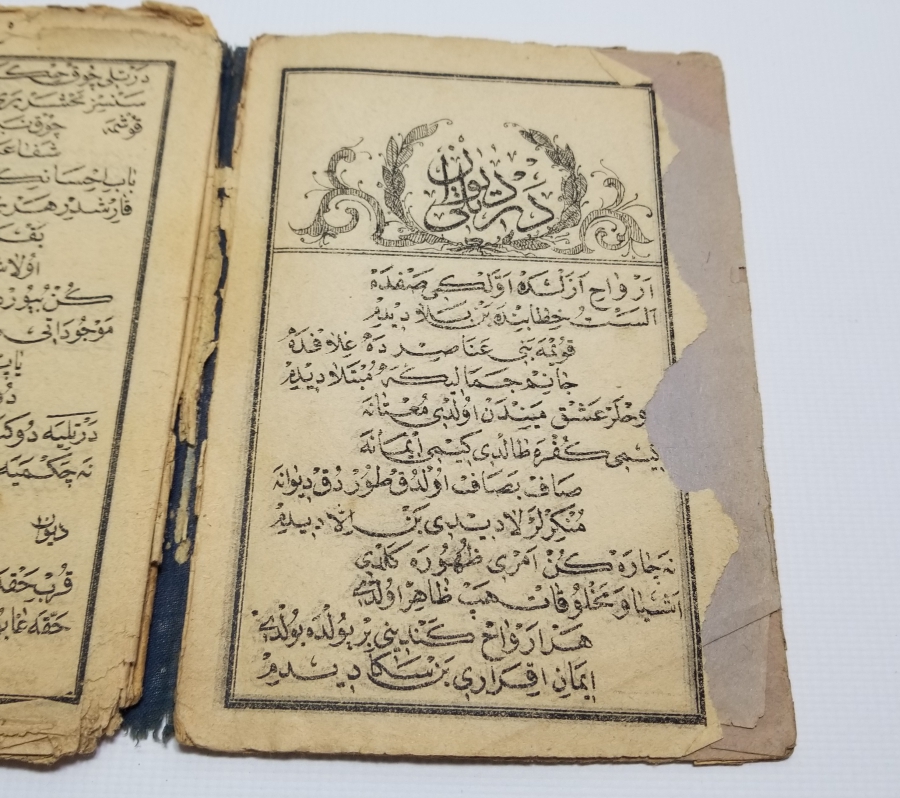 ديوان
درتلی
ارواح ازلده اولکی صفده
الست خطابنده بن بلا دیدم
قویمه بنی عناصر ده غلافده
جانم جمالیکه مبتلا دیدم
وحلر عشق میندن اولدی مستانه
کیمی کفره طالدی کیمی ایمانه
صاف بصاف اولدق طوردق دیوانه
منکرلر لا دیدی بن الا دیدم
نه چاره کن امری ظهوره کلدی
اشیا و مخلوقات هب ظاهر اولدی
هدارواح کندینی بر یولده بولدی
ایمان اقراری بن سکا دیدم
درتلی چوق
سنسز محشر
قوشمه چوق
قارشدیر
کن
موجوداتی
درتلیه
نه چکمیه
دیوان
قرب
حقه